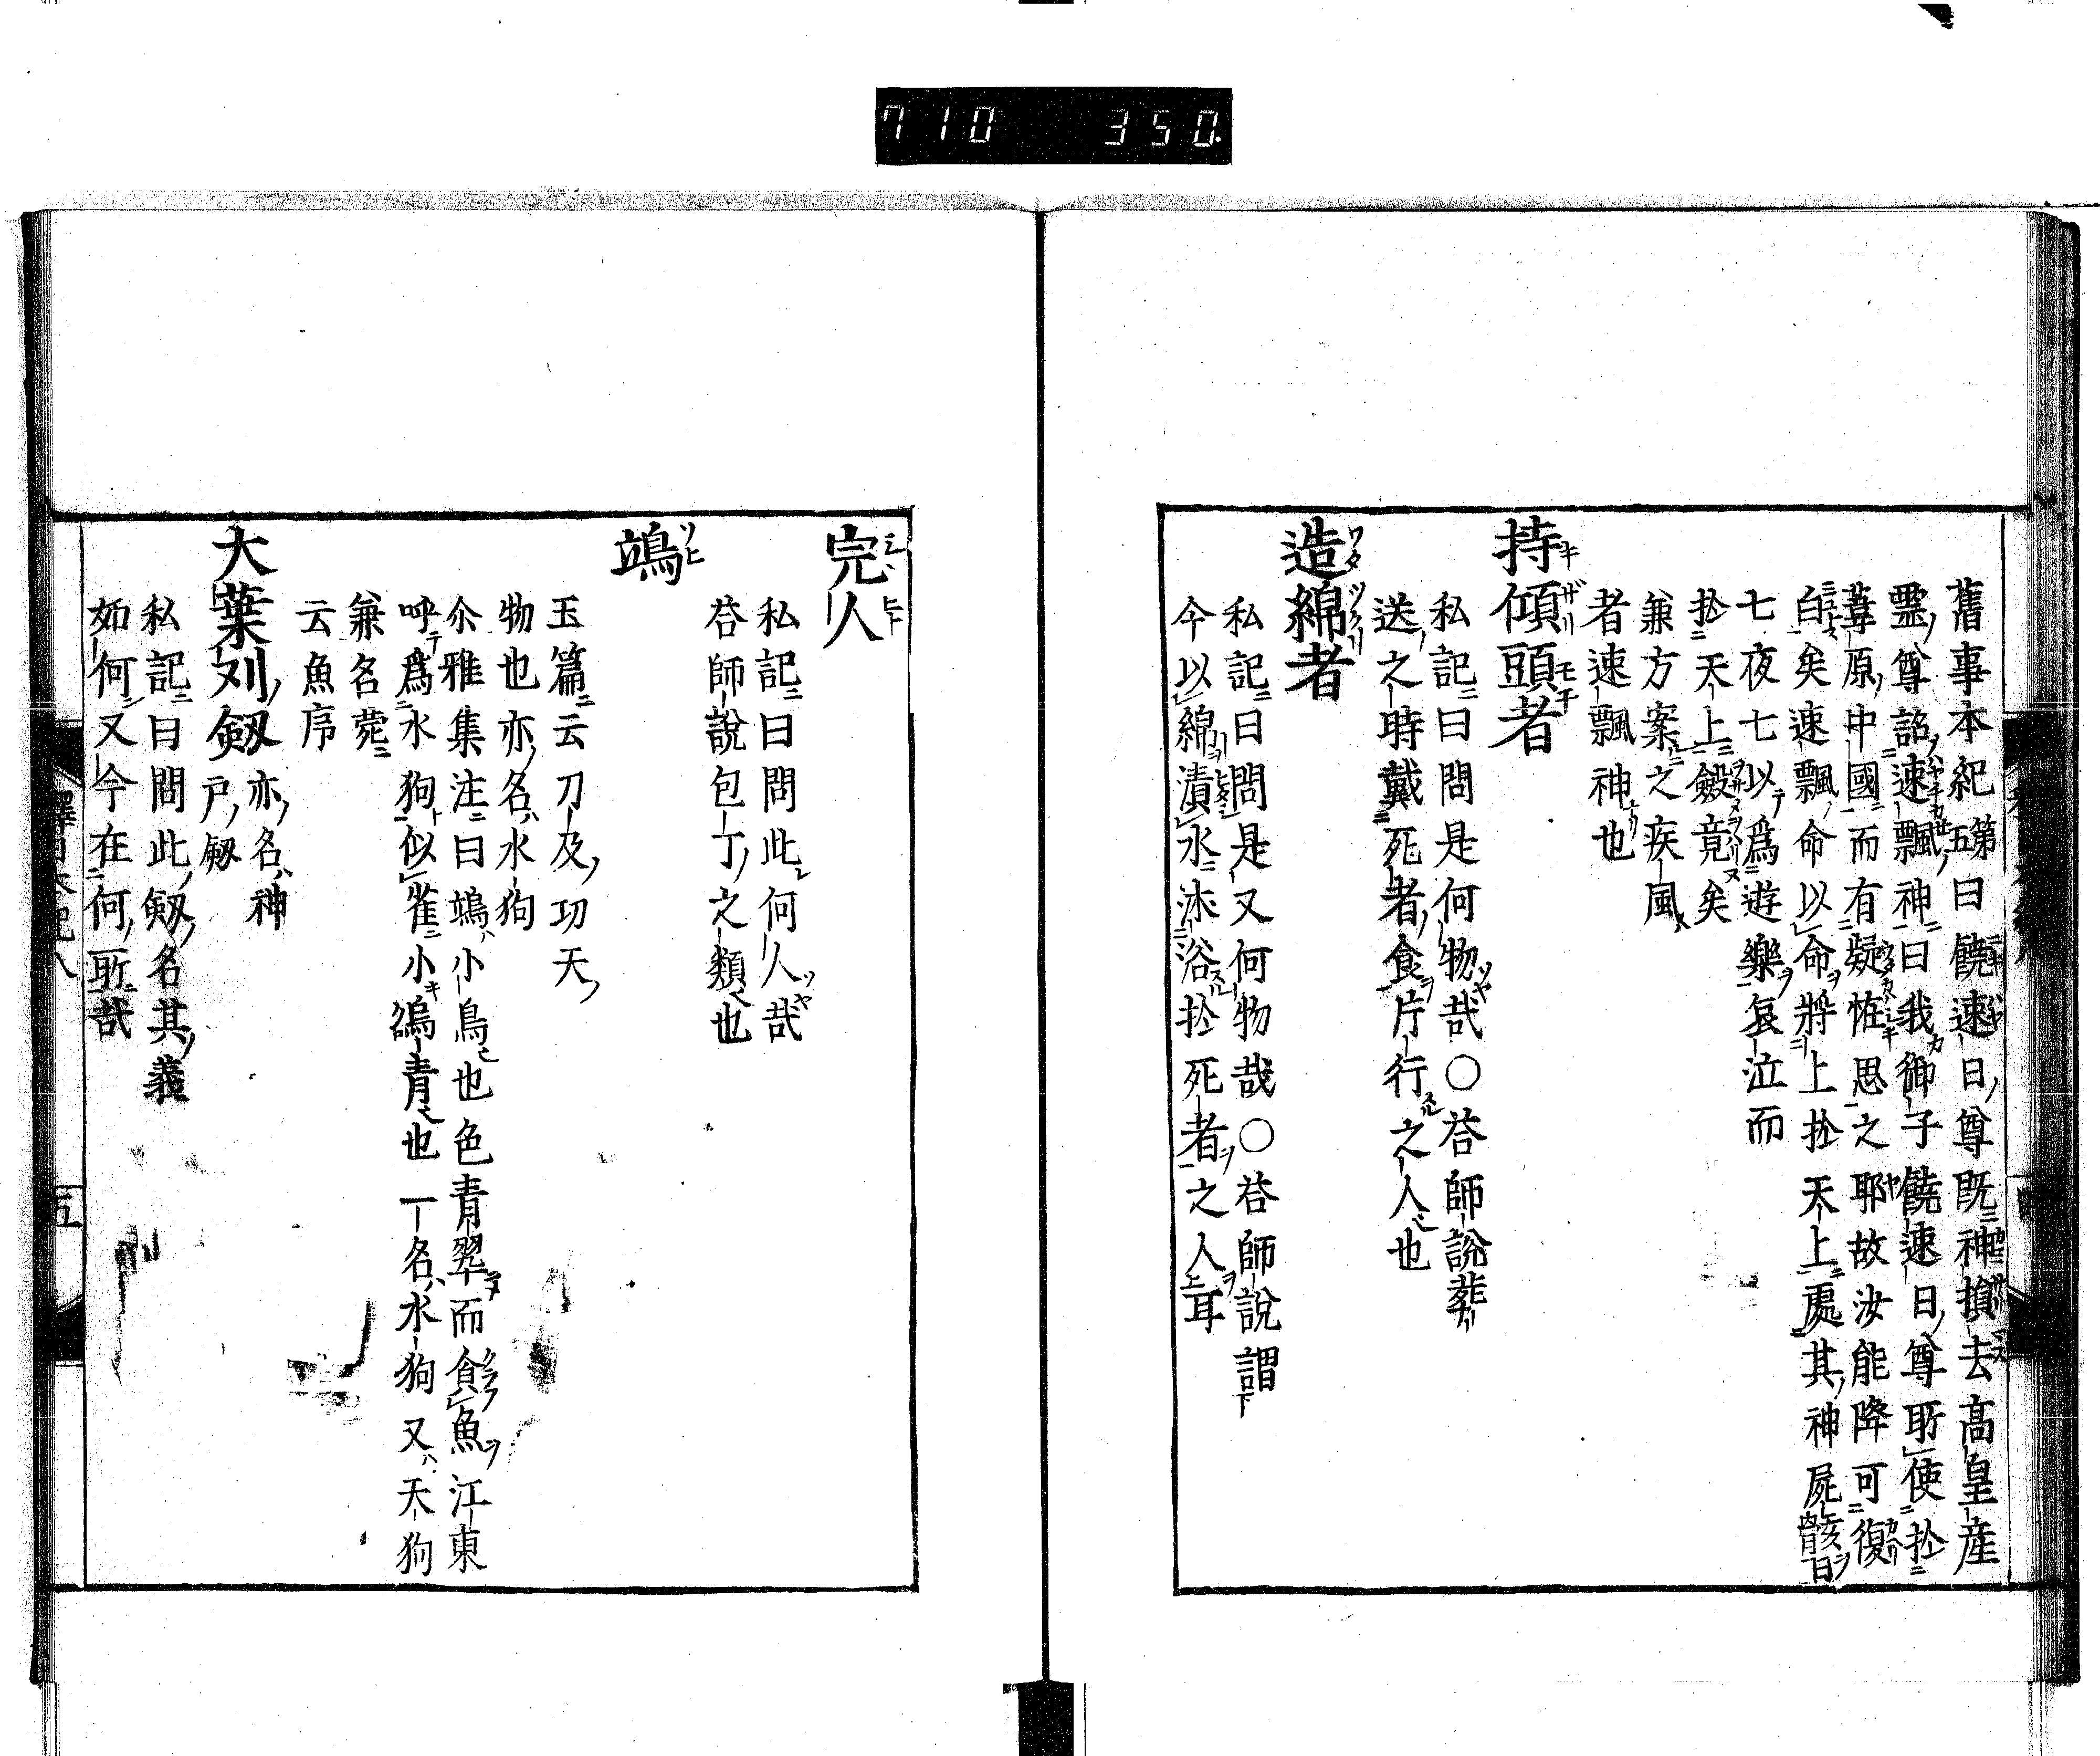 710 350
舊事本紀第五曰饒速日尊既神損去髙皇産
霊尊詔速飄神曰我御子饒速日尊所使於
葦原中國而有疑恠思之耶故汝能降可復
白矣速飄命以命將上於天上處其神屍骸日
七夜七以爲遊樂哀泣而
於天上斂竟矣
兼方案之疾風
者速飄神也
持傾頭者
私記曰問是何物哉〇荅師說葬
送之時戴死者食片行之人也
造綿者
私記曰問是又何物哉〇荅師說謂
今以綿漬水沐浴於死者之人耳
完人
私記曰問此何人哉
荅師說包丁之類也
鴗
玉篇云刀及切天
物也亦名水狗
尒雅集注曰鴗小鳥也色青翠而食魚江東
呼爲水狗似雀小青也一名水狗又天狗
兼名苑
云魚序
大葉刈劔亦名神戸劔
私記曰問此劔名其義
如何又今在何所哉
五